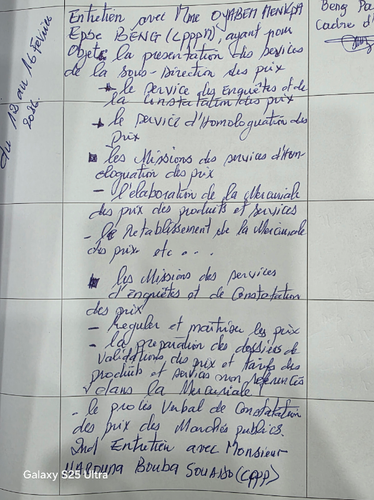 Entretien avec Mme OYABEH MENKPA
Epse BENG (CPPP), ayant pour
Objet la presentation des Services
de la Sous-Direction des prix
+ le Service des Enquêtes et de
la Constatation des prix
+ le Service d'Homologuation des
prix
les Missions des services d'Hom-
ologuation des prix
- l'élaboration de la Mercuriale
des prix des produits et services
- le Retablissement de la Mercuriale
des prix etc...
les Missions des services
d'Enquêtes et de Constatation
des prix
- Reguler et maitriser les prix
- la preparation des dossiers de
Validations des prix et tarifs des
produits et services non referencés
dans la Mercuriale
- le procès Verbal de Constatation
des prix des Marchés publics.
2nd Entretien avec Monsieur
HAROUNA BOUBA (CPPP)
Beng Pa
Cadre d'
du 12 au 16 Fevrier
Galaxy S25 Ultra